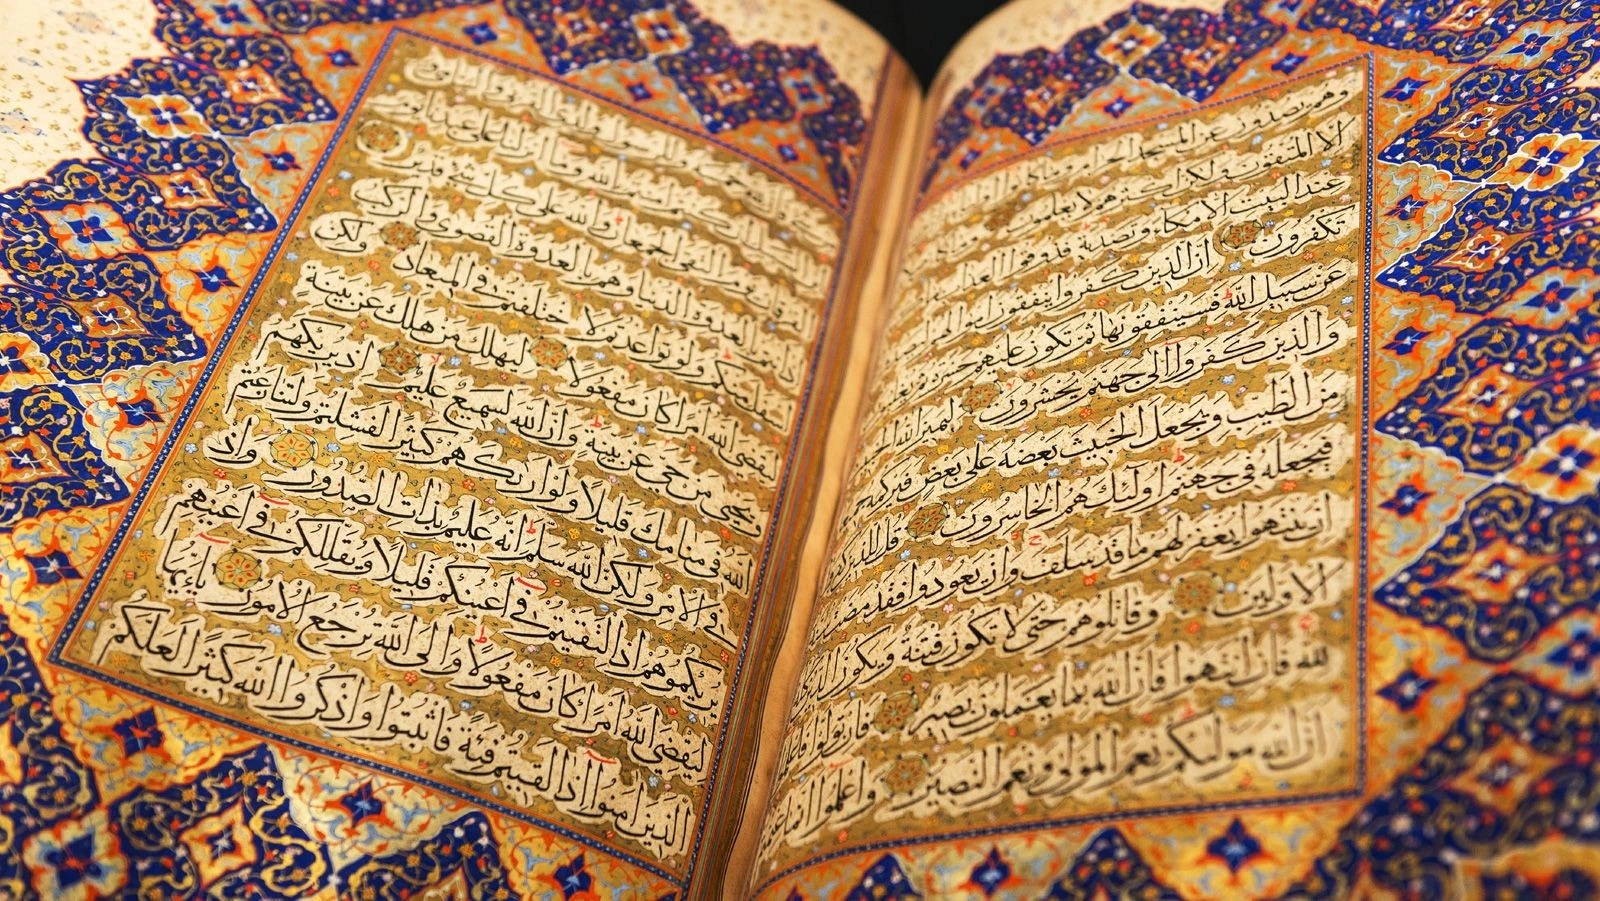 وهم يصدون عن المسجد الحرام وما كانوا
الا المتقون ولكن اكثرهم لا يعلمون
عند البيت الا مكاء وتصدية فذوقوا العذاب
تكفرون ان الذين كفروا ينفقون اموالهم
عن سبيل الله فسينفقونها ثم تكون عليهم حسرة
والذين كفروا الى جهنم يحشرون ليميز الله
من الطيب ويجعل الخبيث بعضه على بعض فيركمه
فيجعله في جهنم اولئك هم الخاسرون قل للذين
ان ينتهوا يغفر لهم ما قد سلف وان يعودوا فقد مضت
الاولين وقاتلوهم حتى لا تكون فتنة ويكون الدين
لله فان انتهوا فان الله بما يعملون بصير وان تولوا فاعلموا
ان الله موليكم نعم المولى ونعم النصير واعلموا انما غنمتم
الفرقان يوم التقى الجمعان والله على كل شيء قدير
اذ انتم بالعدوة الدنيا وهم بالعدوة القصوى والركب
اسفل منكم ولو تواعدتم لاختلفتم في الميعاد ولكن
ليقضي الله امرا كان مفعولا ليهلك من هلك عن بينة
ويحيى من حي عن بينة وان الله لسميع عليم اذ يريكهم
الله في منامك قليلا ولو اريكهم كثيرا لفشلتم ولتنازعتم
في الامر ولكن الله سلم انه عليم بذات الصدور واذ
يريكموهم اذ التقيتم في اعينكم قليلا ويقللكم في اعينهم
ليقضي الله امرا كان مفعولا والى الله ترجع الامور يا ايها
الذين امنوا اذا لقيتم فئة فاثبتوا واذكروا الله كثيرا لعلكم